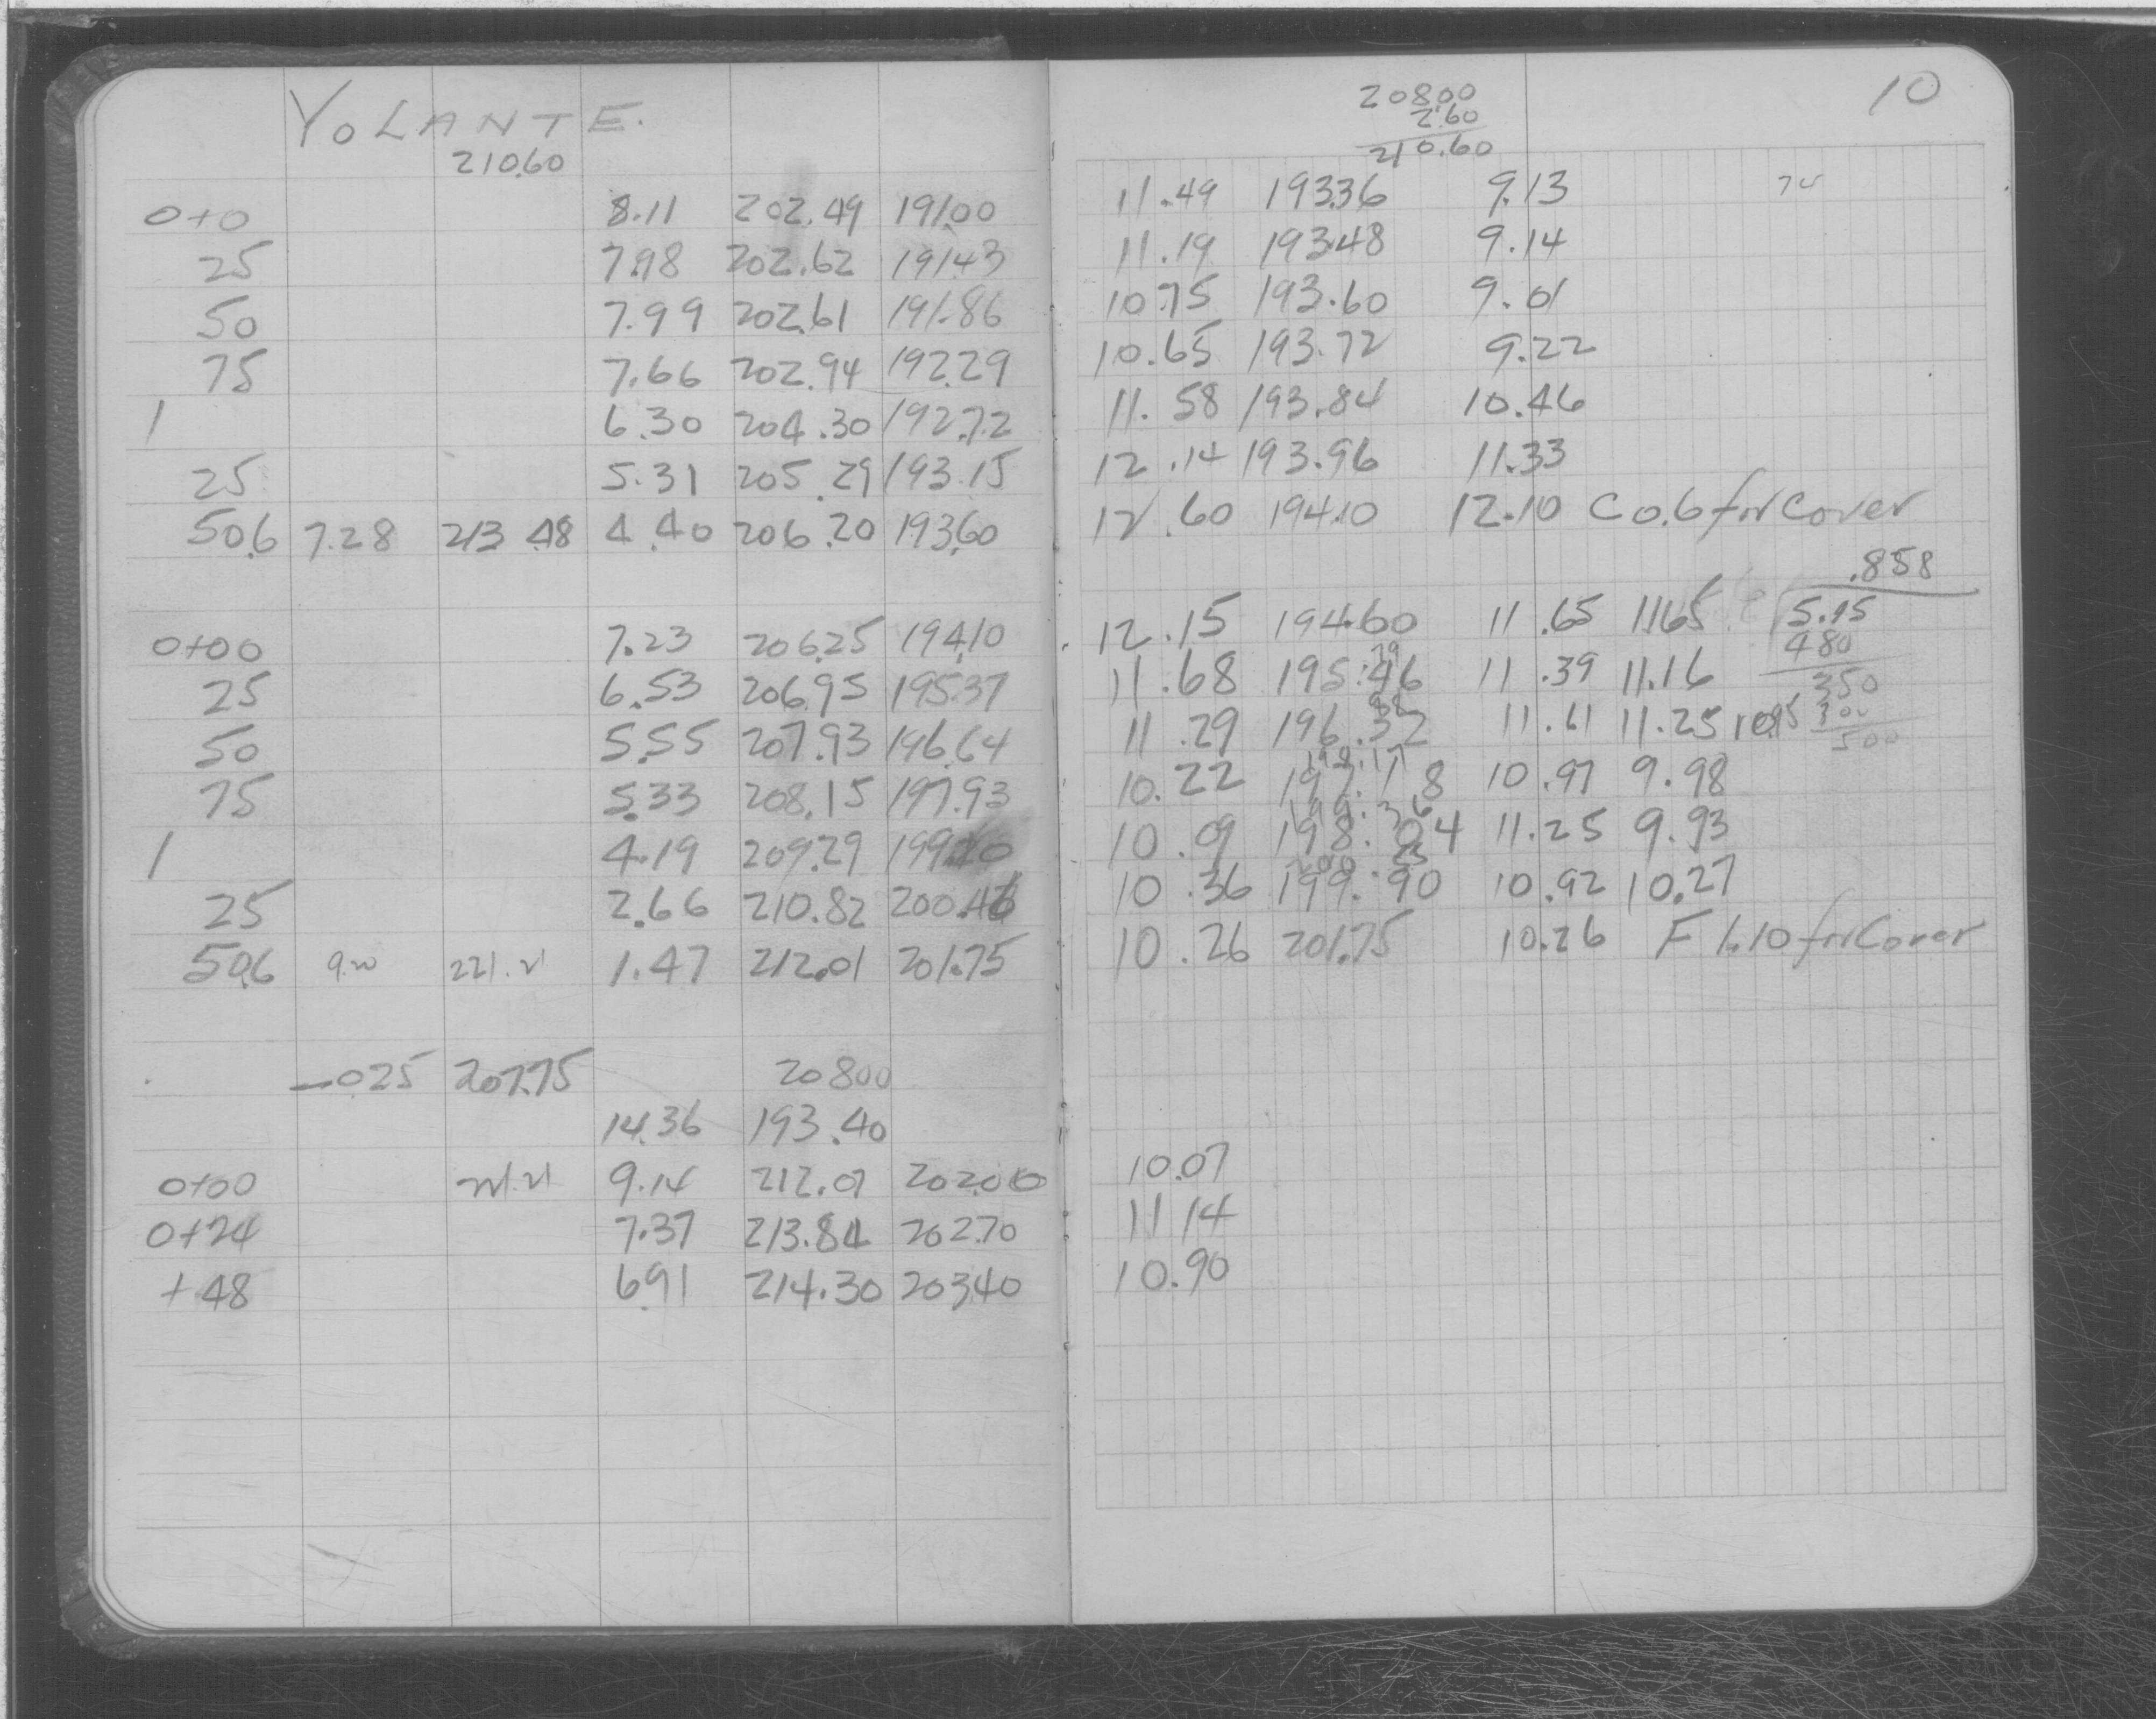 YOLANTE.
210.60
0+0 8.11 202.49 191.00
25 7.98 202.62 191.43
50 7.99 202.61 191.86
75 7.66 202.94 192.29
1 6.30 204.30 192.72
25 5.31 205.29 193.15
50.6 7.28 213.48 4.40 206.20 193.60
0+00 7.23 206.25 194.10
25 6.53 206.95 195.37
50 5.55 207.93 196.64
75 5.33 208.15 197.93
1 4.19 209.29 199.20
25 2.66 210.82 200.46
50.6 9.20 221.21 1.47 212.01 201.75
-0.25 207.75 208.00
14.36 193.40
0+00 221.21 9.14 212.07 202.00
0+24 7.37 213.84 202.70
+48 6.91 214.30 203.40
10
208.00
2.60
210.60
11.49 193.36 9.13
11.19 193.48 9.14
10.75 193.60 9.01
10.65 193.72 9.22
11.58 193.84 10.46
12.14 193.96 11.33
12.60 194.10 12.10 C 0.6 for Cover
.858
12.15 194.60 11.65 11.65 5.15
480
11.68 195.46 11.39 11.16
350
11.29 196.32 11.61 11.25 10.95 300
500
198.17
10.22 197.18 10.97 9.98
199.36
10.09 198.04 11.25 9.93
10.36 199.90 10.92 10.27
10.26 201.75 10.26 F 1.10 for Cover
10.07
11 14
10.90